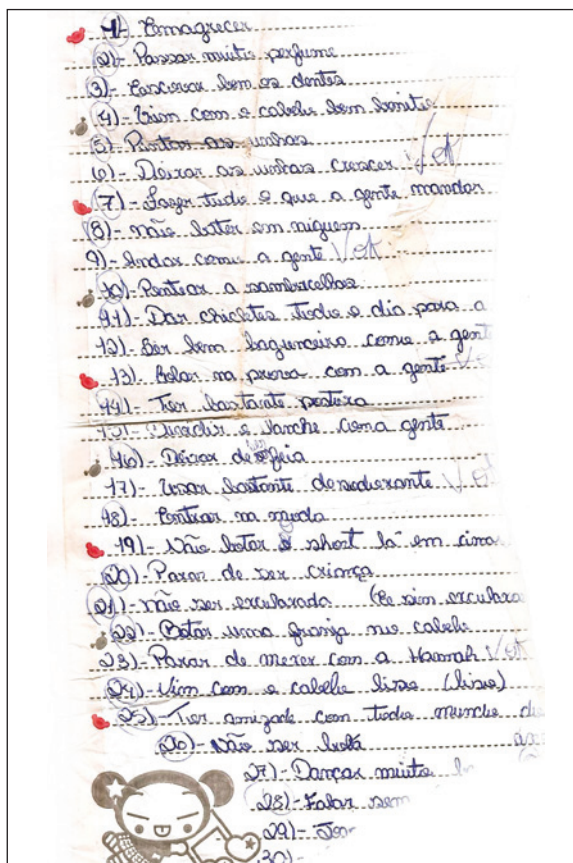 1)- Emagrecer
2)- Passar muito perfume
3)- Escovar bem os dentes
4)- Vim com o cabelo bem bonito
5)- Pintar as unhas
6)- Deixar as unhas crescer V ok
7)- Fazer tudo o que a gente mandar
8)- não bater em niguem
9)- Andar como a gente V ok
10)- Pentear a sombrecelhas
11)- Dar chicletes todo o dia para a
12)- Ser bem bagunceiro como a gent
13)- Colar na prova com a gente V
14)- Ter bastante postura
15)- Dividir o lanche com a gente
16)- Deixar de ser feia
17)- Usar bastante desodorante V
18)- Entrar na moda
19)- Não botar o short la em cima
20)- Parar de ser criança
21)- não ser excularada (Ee sim exculara
22)- Botar uma franja no cabelo
23)- Parar de mexer com a Hannah V ok
24)- Vim com o cabelo liso (liso)
25)- Ter amizade com todo munche di
26)- Não ser
27)- Dançar muito
28)- Falar sem
29)-
30)-